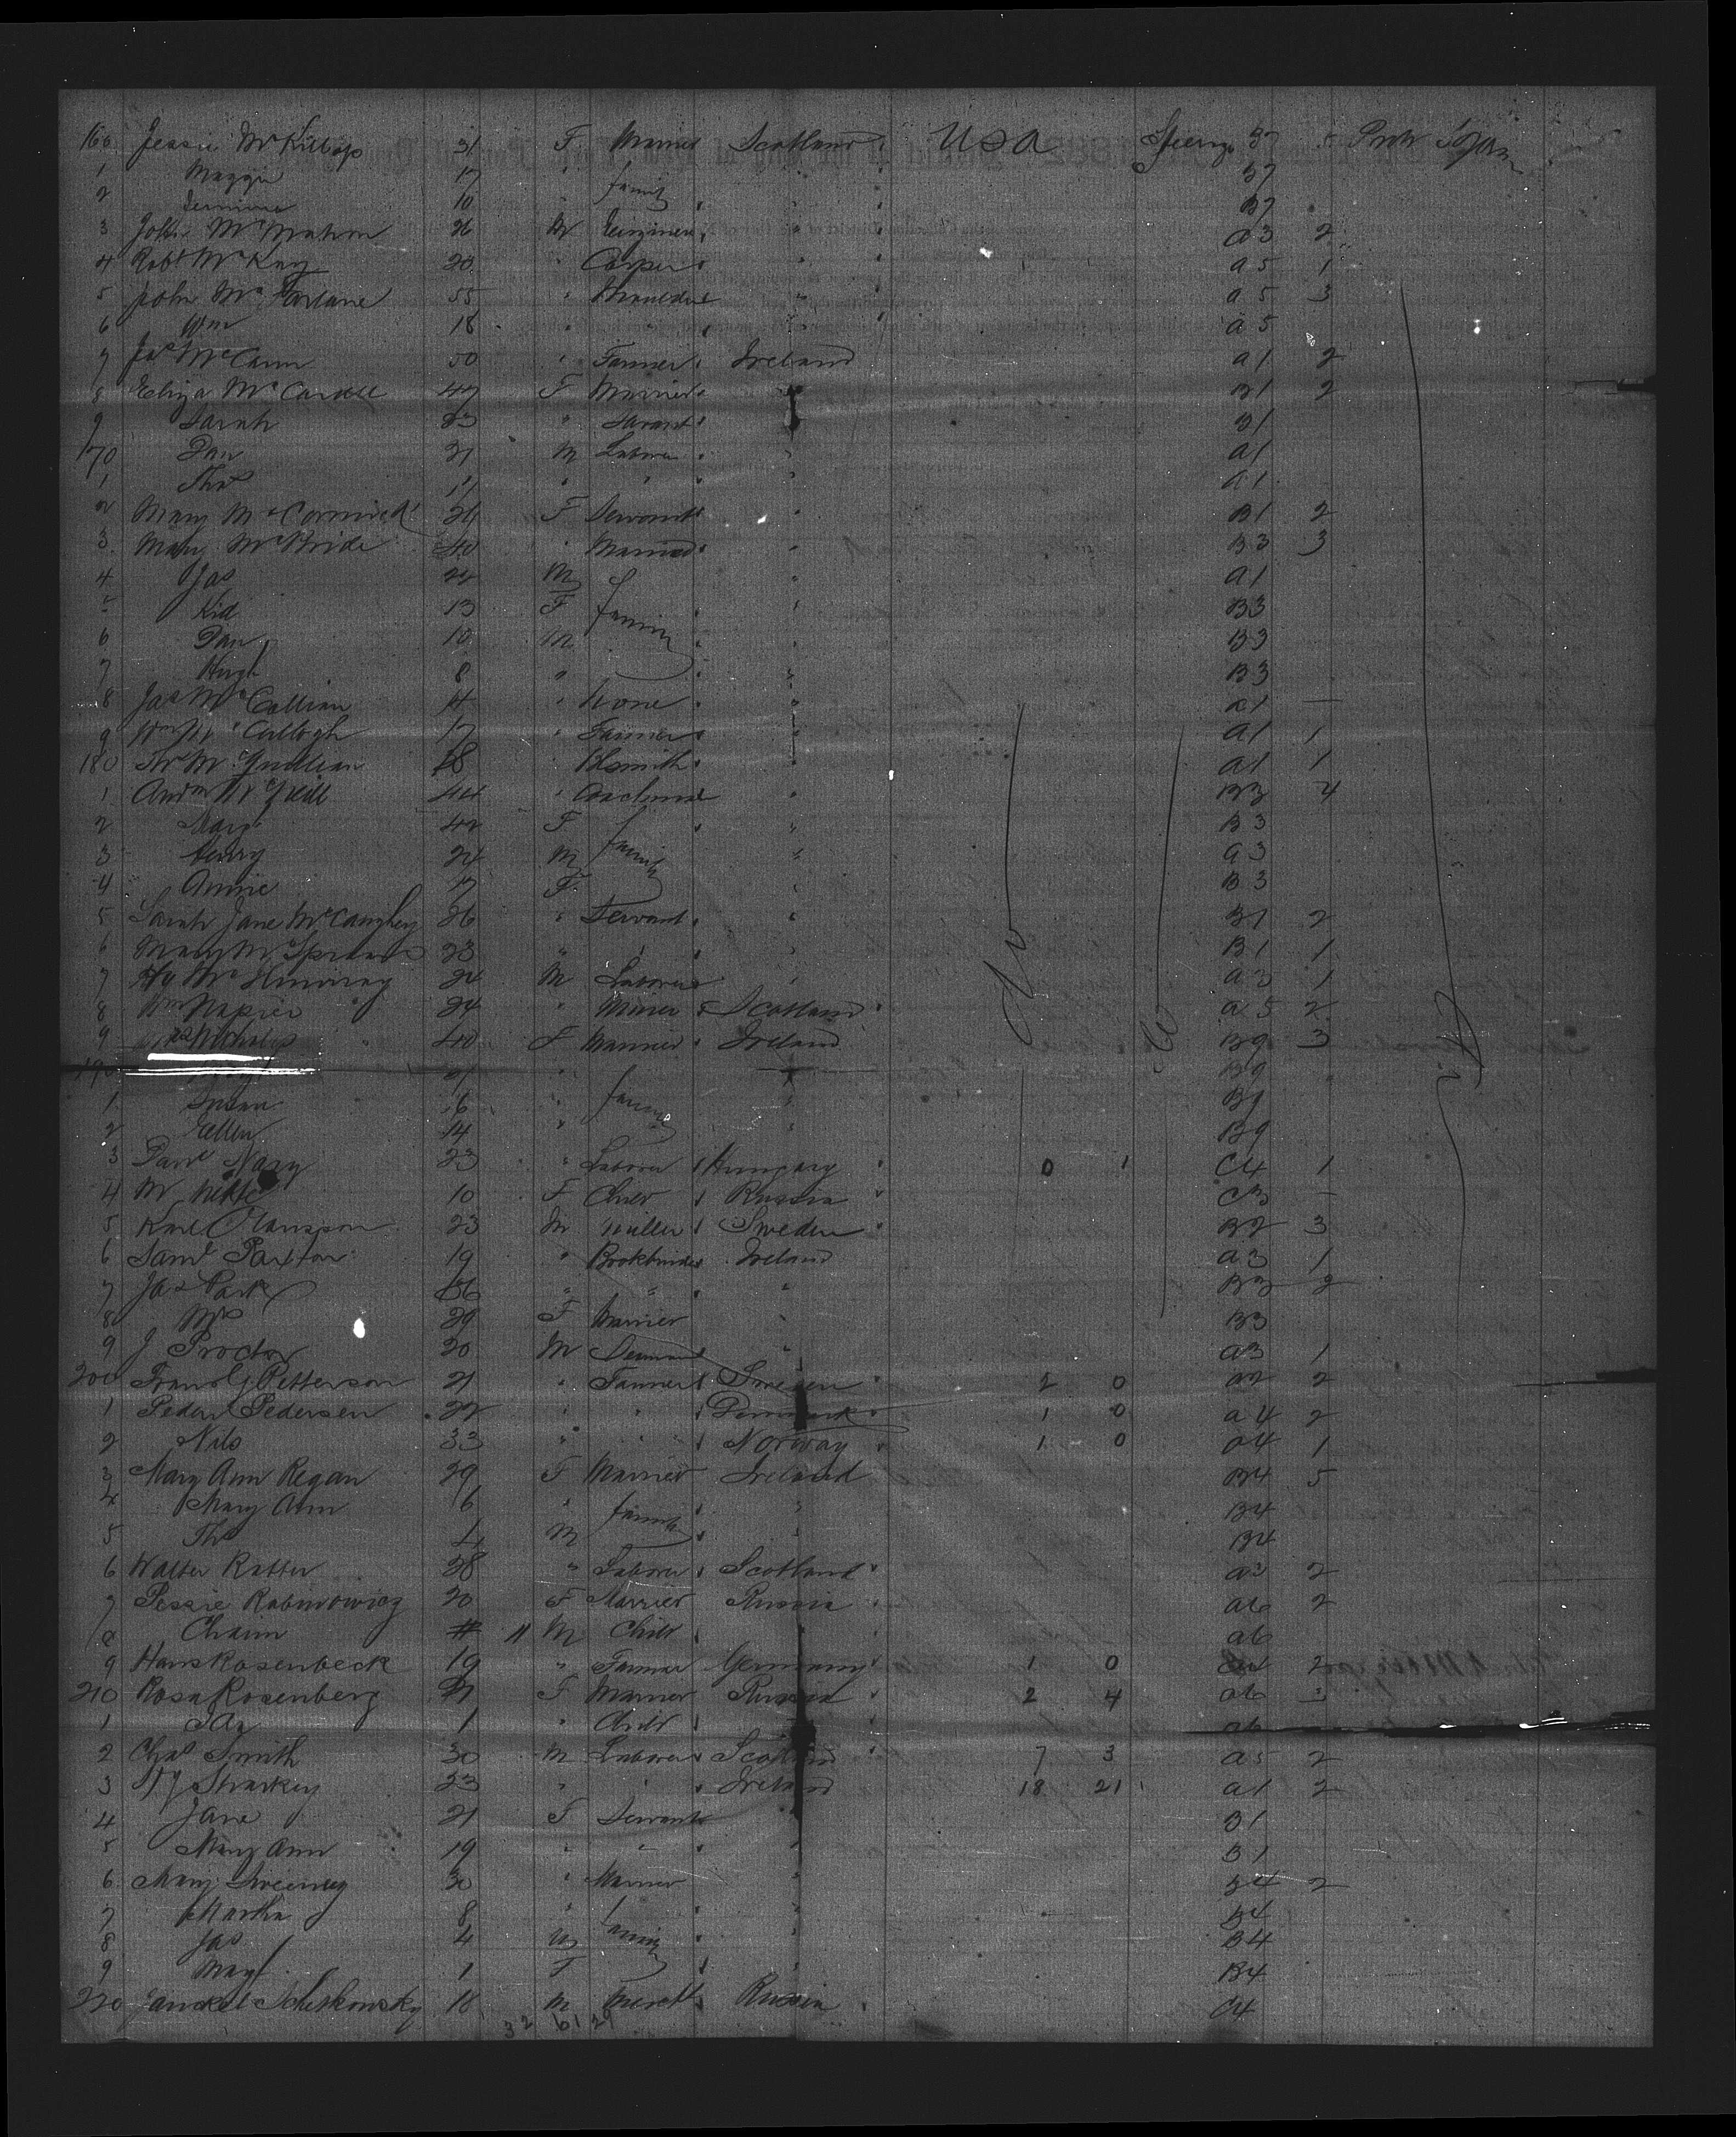 160 Jessie McKillop 31 F Married Scotland USA Steerage B7 Prot Sojour
1 Maggie 17 " family " B7
2 Jemima 10 " " B7
3 John McMahon 26 M Engineer " A3 2
4 Robt McKay 20 " " A5 1
5 John McFarlane 55 " " A5 3
6 Wm 18 " A5
7 Jas McCann 50 " Farmer Ireland A1 2
8 Eliza McCardell 47 F Married " B1 2
9 Sarah 23 " Servant B1
170 Dan 21 M Laborer " A1
1 Thos 11 " " " A1
2 Mary McCormick 26 F Servant " B1 2
3 Mary McBride 40 " Married " B3 3
4 Jas 22 M family " A1
5 13 F " B3
6 Dan 10 M " B3
7 Hugh 8 " " B3
8 Jas McCallion 4 " None " A1 —
9 Wm McCullogh 17 " Farmer " A1 1
180 18 " Blsmith " A1 1
1 Andw McNeill 44 " Coachman " B3 4
2 Mary 42 F family " B3
3 Henry 24 M " A3
4 Annie 17 F " B3
5 Sarah Jane McCaughey 26 " Servant " B1 2
6 Mary 23 " " " B1 1
7 24 M Laborer " A3 1
8 Wm Napier 24 " Miner Scotland A5 2
9 40 F Married Ireland B9 3
190 " B9
1 Susan 16 " family " B9
2 Ellen 14 " " B9
3 Nagy 23 " Laborer Hungary 0 1 C4 1
4 M 10 F Child Russia —
5 Karl Olansson 23 M Miller Sweden B2 3
6 Saml Paxton 19 " Bookbinder Ireland A3 1
7 Jas Park 36 " " " B3 2
8 Mrs 29 F Married " B3
9 J Proctor 20 M " A3 1
200 Frans G Petterson 21 " Farmer Sweden 2 0 A2 2
1 Peder Pedersen 22 " " Denmark 1 0 A4 2
2 Nils 33 " " Norway 1 0 A4 1
3 Mary Ann Regan 29 F Married Ireland B4 5
4 Mary Ann 6 " family " B4
5 Thos 4 M " B4
6 Walter Ratter 28 " Laborer Scotland A3 2
7 Pessie Rabinowicz 20 F Married Russia A6 2
8 Chaim 11 M Child A6
9 Hans Rosenbeck 19 " Farmer Germany 1 0 A4 2
210 Rosa Rosenberg 21 F Married Russia 2 4 A6 3
1 Ida 1 " Child A6
2 Chas Smith 30 M Laborer Scotland 7 3 A5 2
3 Hy Sharkey 23 " " Ireland 18 21 A1 2
4 Jane 21 F Servant B1
5 Mary Ann 19 " " " B1
6 Mary Sweeney 30 " Married " B4 2
7 Martha 8 " family " B4
8 Jas 4 M " B4
9 Mary 1 F " B4
220 Janckel Scheskowsky 18 M Mercht Russia C4
32 61 29